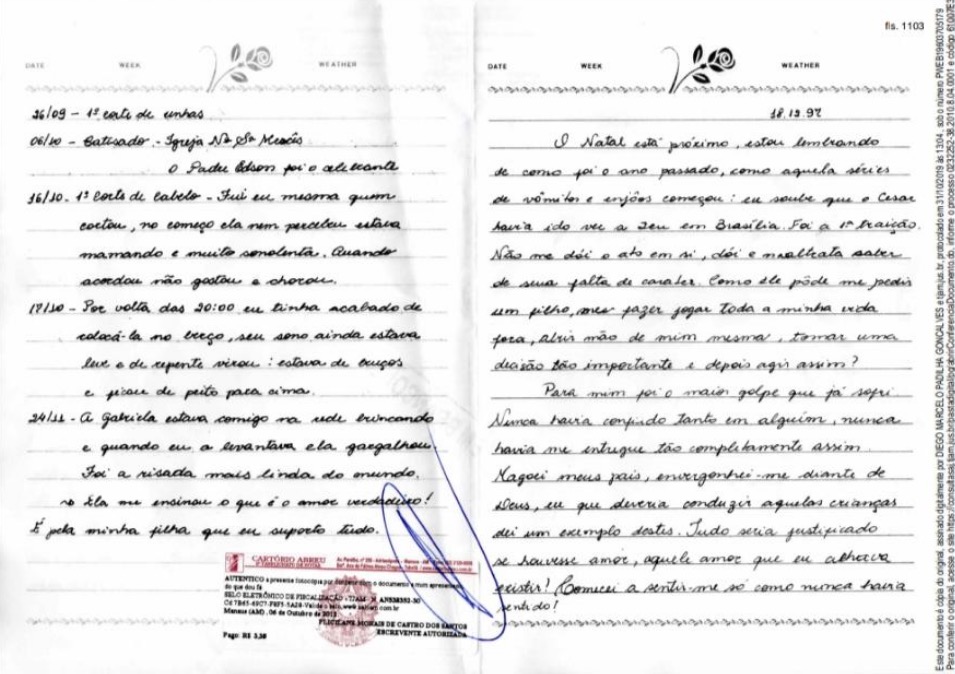 fls. 1103
DATE WEEK WEATHER
26/09 - 1º corte de unhas
06/10 - Batisado - Igreja Nª Sª Mercês
O Padre Edson foi o celebrante
16/10 - 1º Corte de Cabelo - Fui eu mesma quem
cortou, no começo ela nem percebeu estava
mamando e muito sonolenta. Quando
acordou não gostou e chorou.
17/10 - Por volta das 20:00 eu tinha acabado de
colocá-la no berço, seu sono ainda estava
leve e de repente virou: estava de bruços
e ficou de peito para cima.
24/11 - A Gabriela estava comigo na rede brincando
e quando eu a levantava ela gargalhou
Foi a risada mais linda do mundo.
Ela me ensinou o que é o amor verdadeiro!
É pela minha filha que eu suporto tudo.
CARTÓRIO ABREU
AUTENTICO a presente fotocópia por
do que dou fé
SELO ELETRÔNICO DE FISCALIZAÇÃO
Manaus (AM), 06 de Outubro de
MORAIS DE CASTRO DOS SANTOS
ESCREVENTE AUTORIZADA
Pago: R$
DATE WEEK WEATHER
18.12.97
O Natal está próximo, estou lembrando
de como foi o ano passado, como aquela séries
de vômitos e enjôos começou: eu soube que o Cesar
havia ido ver a em Brasília. Foi a 1ª traição.
Não me dói o ato em si, dói e maltrata saber
de sua falta de carater. Como ele pôde me pedir
um filho, me fazer jogar toda a minha vida
fora, abrir mão de mim mesma, tomar uma
decisão tão importante e depois agir assim?
Para mim foi o maior golpe que já sofri
Nunca havia confiado tanto em alguém, nunca
havia me entregue tão completamente assim.
Magoei meus pais, envergonhei-me diante de
Deus, eu que deveria conduzir aquelas crianças
dei um exemplo destes. Tudo seria justificado
se houvesse amor, aquele amor que eu achava
existir! Comecei a sentir-me só como nunca havia
sentido!
Este documento é cópia do original, assinado digitalmente por DIEGO MARCELO PADILHA GONÇALVES e tjam.jus.br, protocolado em 31/10/2019 às 13:04, sob o número
Para conferir o original, acesse o site informe o processo 0232252-38.2010.8.04.0001 e código